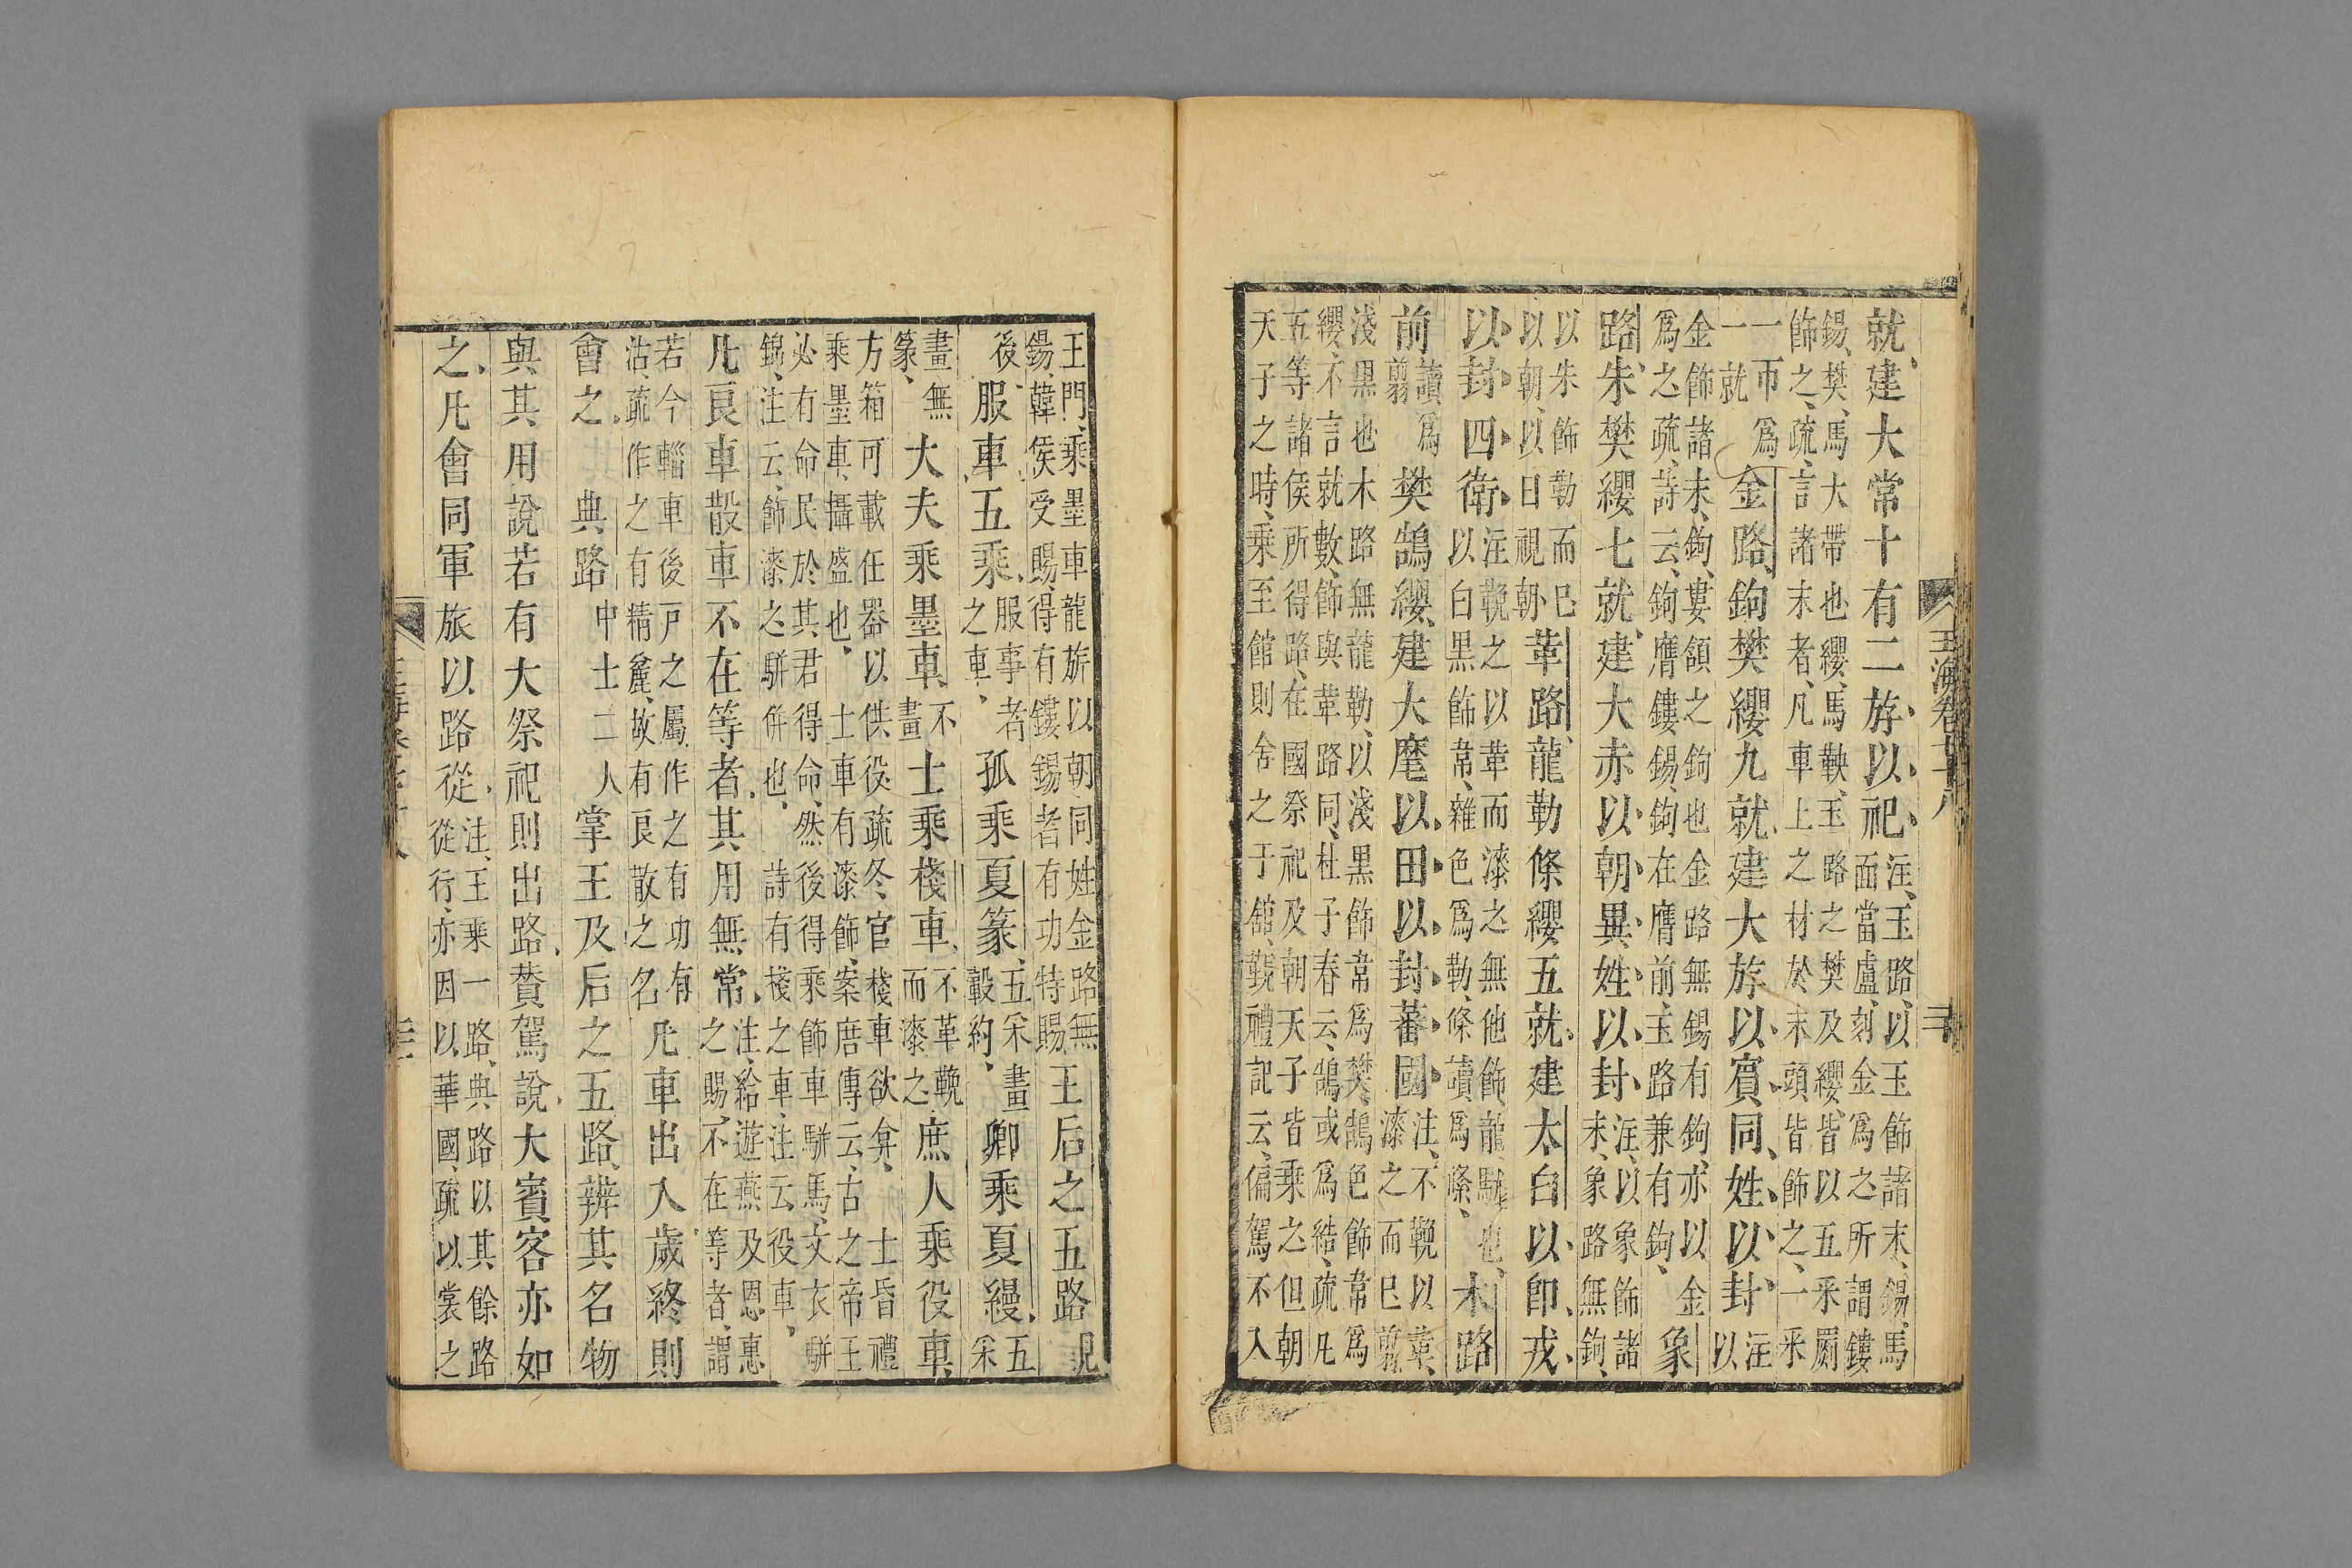 就建大常十有二斿以祀注玉路以玉飾諸末錫馬
面當盧刻金爲之所謂鏤
錫樊馬大帶也纓馬鞅玉路之樊及纓皆以五采罽
飾之疏言諸末者凡車上之材於末頭皆飾之一采
一帀爲
一就金路鉤樊纓九就建大旂以賓同姓以封注
以
金飾諸末鉤婁頷之鉤也金路無錫有鉤亦以金
爲之疏詩云鉤膺鏤錫鉤在膺前玉路兼有鉤象
路朱樊纓七就建大赤以朝異姓以封注以象飾諸
末象路無鉤
以朱飾勒而已
以朝以日視朝革路龍勒條纓五就建太白以即戎
以封四衛注鞔之以革而漆之無他飾龍駹也
以白黒飾韋雜色爲勒條讀爲絛木路
前讀爲
翦樊鵠纓建大麾以田以封蕃國注不鞔以革
漆之而已翦
淺黒也木路無龍勒以淺黒飾韋爲樊鵠色飾韋爲
纓不言就數飾與革路同杜子春云鵠或爲結疏凡
五等諸侯所得路在國祭祀及朝天子皆乘之但朝
天子之時乘至館則舍之于舘覲禮記云偏駕不入
玉海卷七十八
王門乘墨車龍旂以朝同姓金路無
錫韓侯受賜得有鏤錫者有功特賜王后之五路見
後服車五乘服事者
之車孤乘夏篆五采畫
轂約卿乘夏縵五
采
畫無
篆大夫乘墨車不
畫士乘棧車不革鞔
而漆之庶人乘役車
方箱可載任器以供役疏冬官棧車欲弇士昏禮
乘墨車攝盛也士車有漆飾案唐傳云古之帝王
必有命民於其君得命然後得乘飾車駢馬文衣駢
錦注云飾漆之駢併也詩有棧之車注云役車
凡良車散車不在等者其用無常注給遊燕及恩惠
之賜不在等者謂
若今輜車後戸之屬作之有功有
沽疏作之有精麄故有良散之名凡車出入歲終則
會之典路中士二人掌王及后之五路辨其名物
與其用說若有大祭祀則出路贊駕說大賓客亦如
之凡會同軍旅以路從注王乘一路典路以其餘路
從行亦因以華國疏以裳之